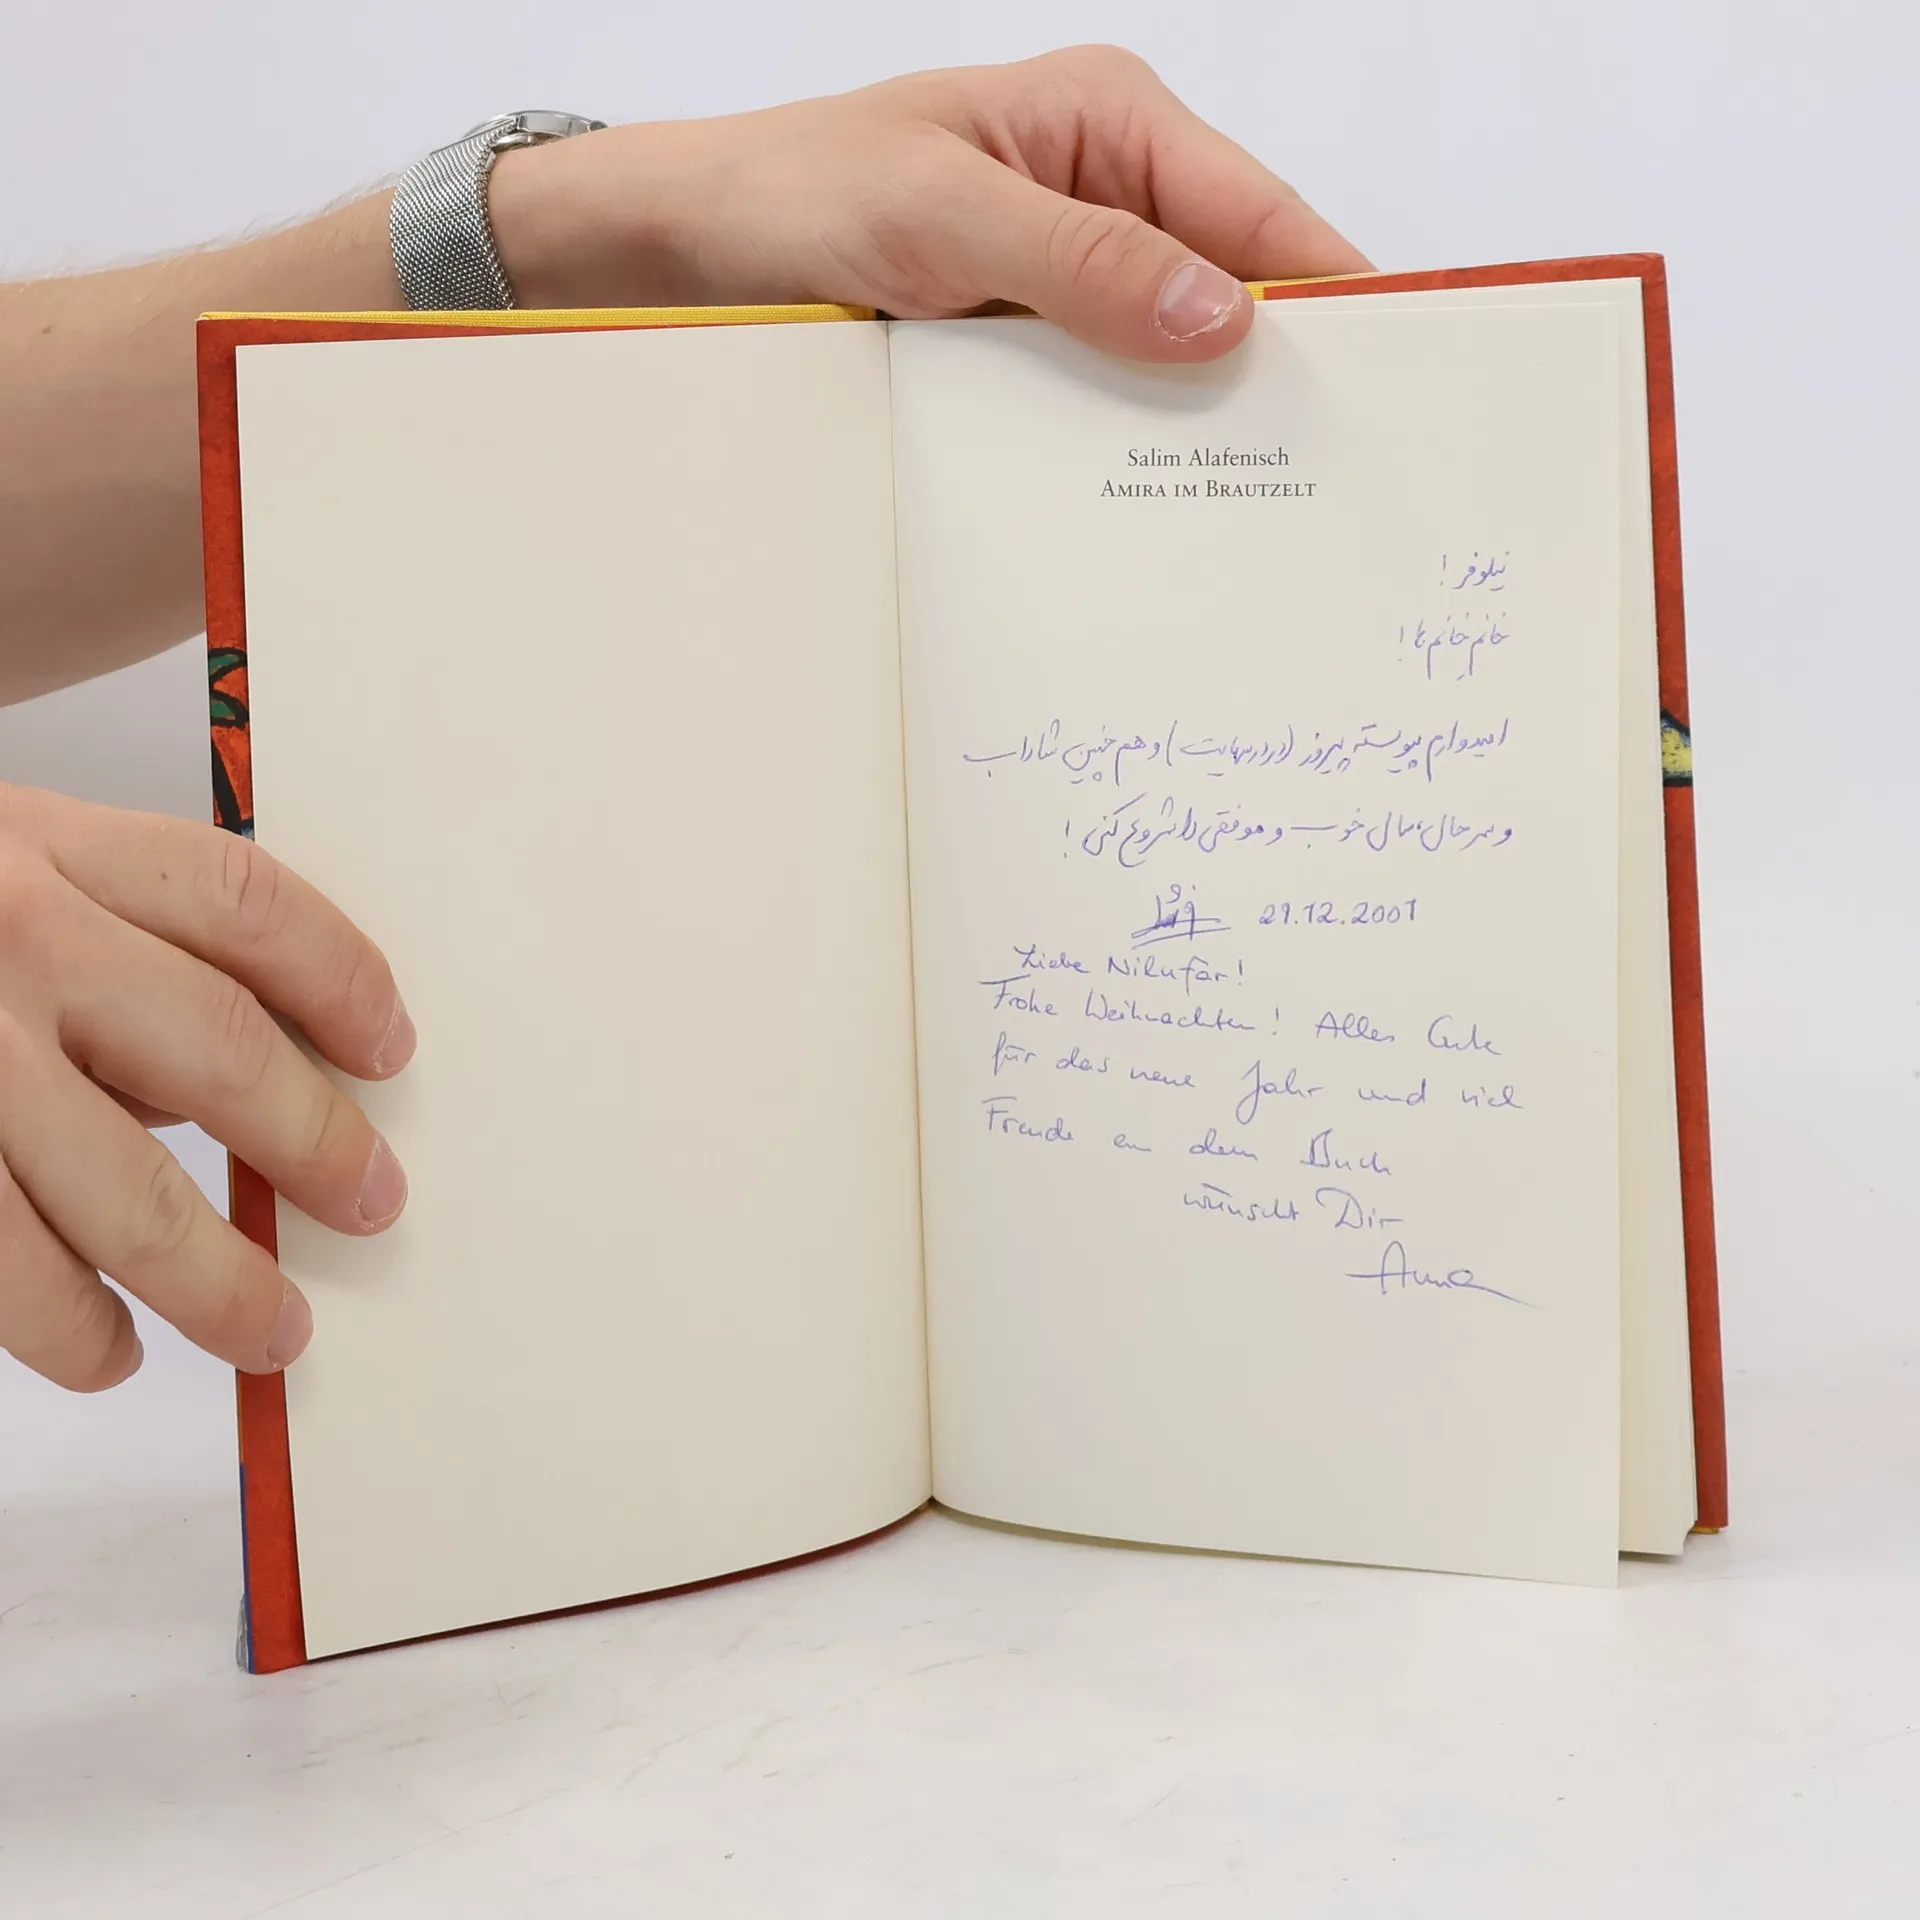 Salim Alafenisch
AMIRA IM BRAUTZELT
نیلوفر!
خانمِ خانم‌ها!
امیدوارم پیوسته پیروز و هم چنین شاداب
و سرحال، سال خوب و موفقی را شروع کنی!
29.12.2001
Liebe Nilufar!
Frohe Weihnachten! Alles Gute
für das neue Jahr und viel
Freude an dem Buch
wünscht Dir
Anna